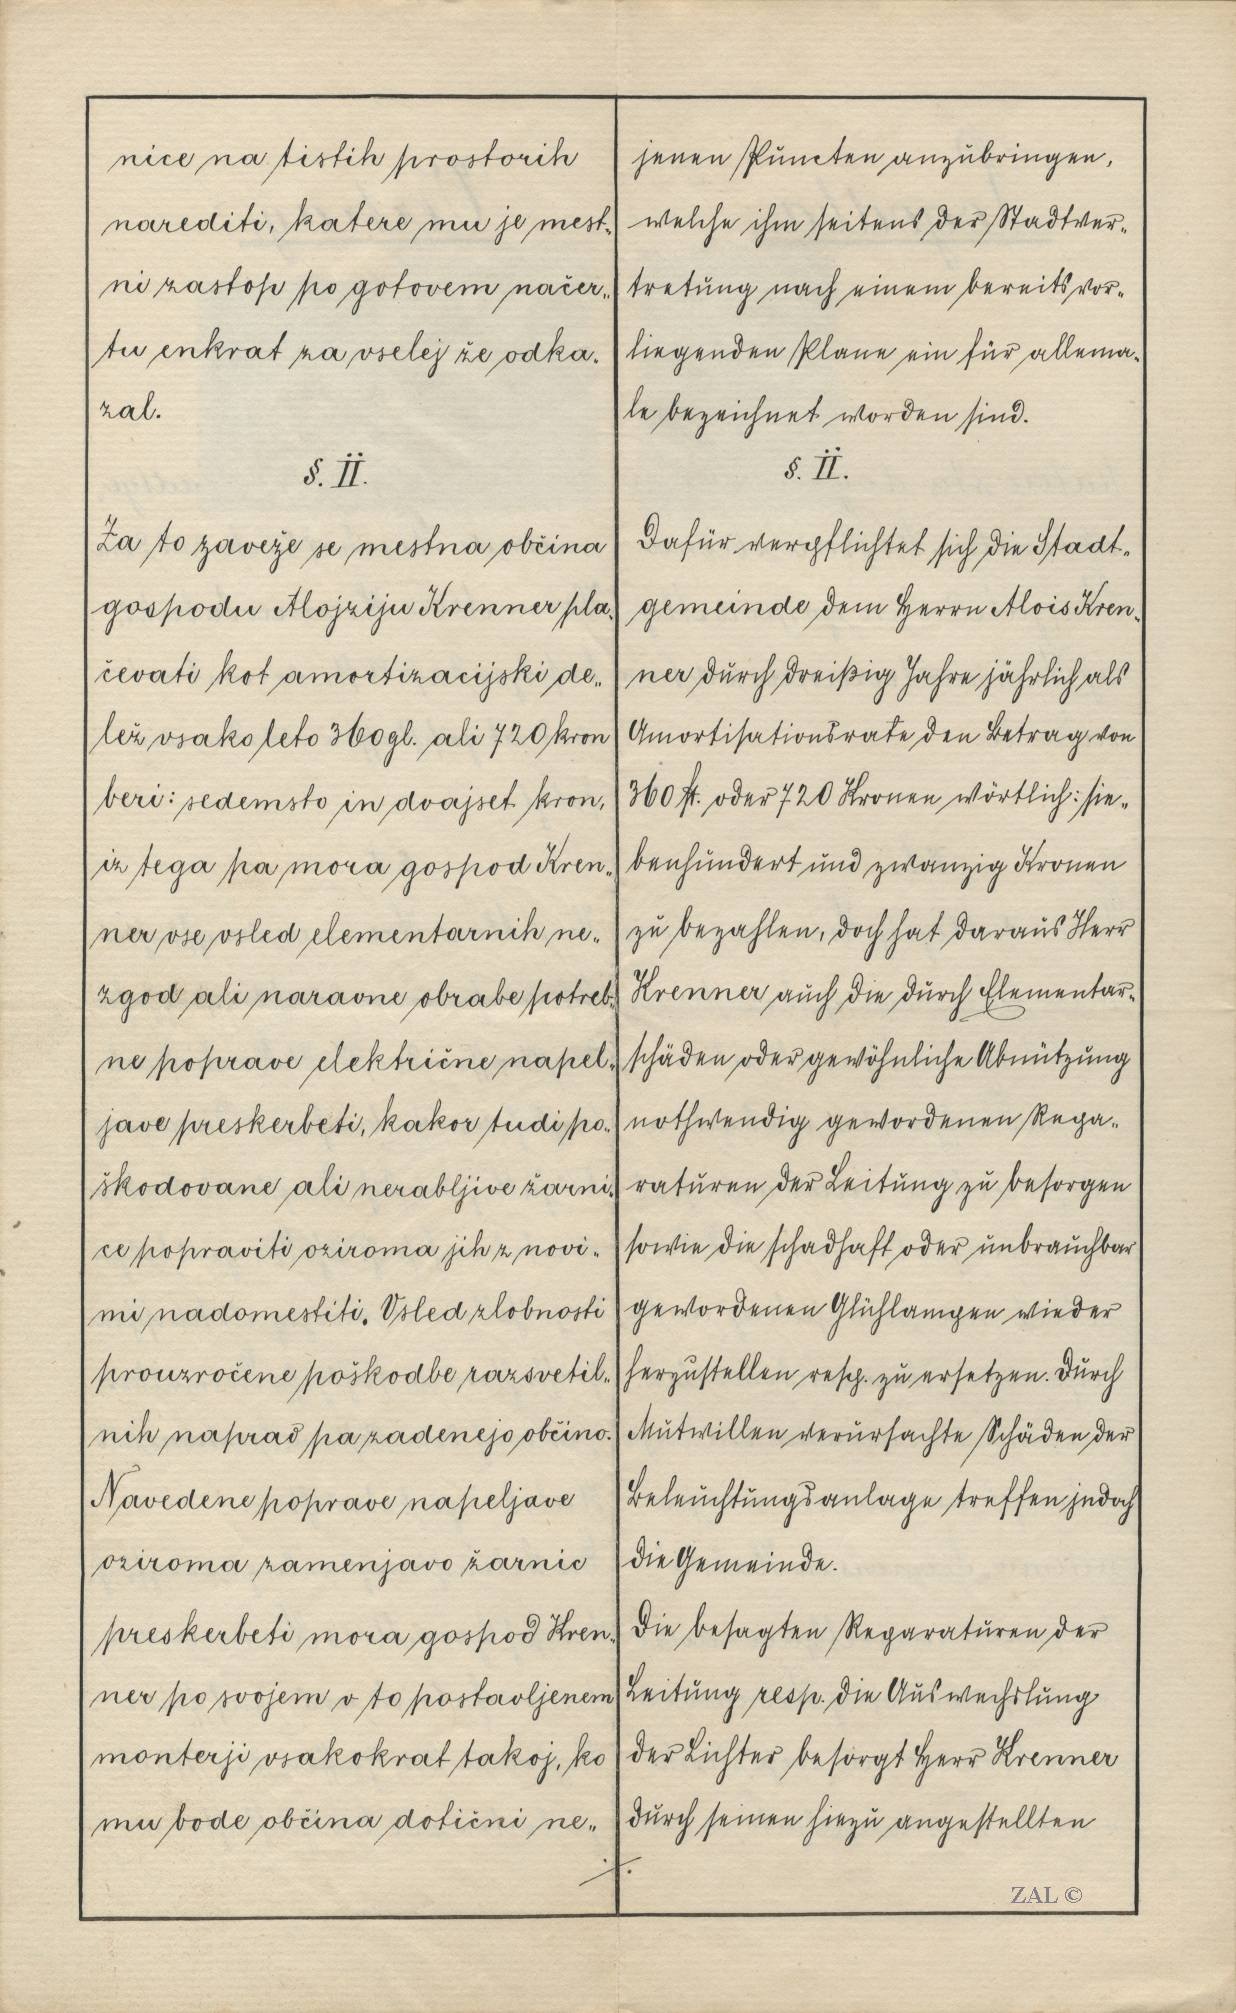 nice na tistih prostorih
narediti, katere mu je mest-
ni zastop po gotovem načer-
tu enkrat za vselej že odka-
zal.
§. II.
Za to zaveže se mestna občina
gospodu Alojziju Krenner pla-
čevati kot amortizacijski de-
lež vsako leto 360 gl. ali 720 kron
beri: sedemsto in dvajset kron,
iz tega pa mora gospod Kren-
ner vse vsled elementarnih ne-
zgod ali naravne obrabe potreb-
ne poprave električne napel-
jave preskerbeti, kakor tudi po-
škodovane ali nerabljive žarni-
ce popraviti oziroma jih z novi-
mi nadomestiti. Vsled zlobnosti
prouzročene poškodbe razsvetil-
nih naprad pa zadenejo občino.
Navedene poprave napeljave
oziroma zamenjavo žarnic
preskerbeti mora gospod Kren-
ner po svojem v to postavljenem
monterji vsakokrat takoj, ko
mu bode občina dotični ne-
jenen Puncten anzubringen,
welche ihm seitens der Stadtver-
tretung nach einem bereits vor-
liegenden Plane ein für allema-
le bezeichnet worden sind.
§. II.
Dafür verpflichtet sich die Stadt-
gemeinde dem Herrn Alois Kren-
ner durch dreißig Jahre jährlich als
Amortisationsrate den Betrag von
360 fl. oder 720 Kronen wörtlich: sie-
benhundert und zwanzig Kronen
zu bezahlen, doch hat daraus Herr
Krenner auch die durch Elementar-
schäden oder gewöhnliche Abnützung
nothwendig gewordenen Repa-
raturen der Leitung zu besorgen
sowie die schadhaft oder unbrauchbar
gewordenen Glühlampen wieder
herzustellen resp. zu ersetzen. Durch
Mutwillen verursachte Schäden der
Beleuchtungsanlage treffen jedoch
die Gemeinde.
Die besagten Reparaturen der
Leitung resp. die Auswechslung
der Lichter besorgt Herr Krenner
durch seinen hiezu angestellten
./.
ZAL ©